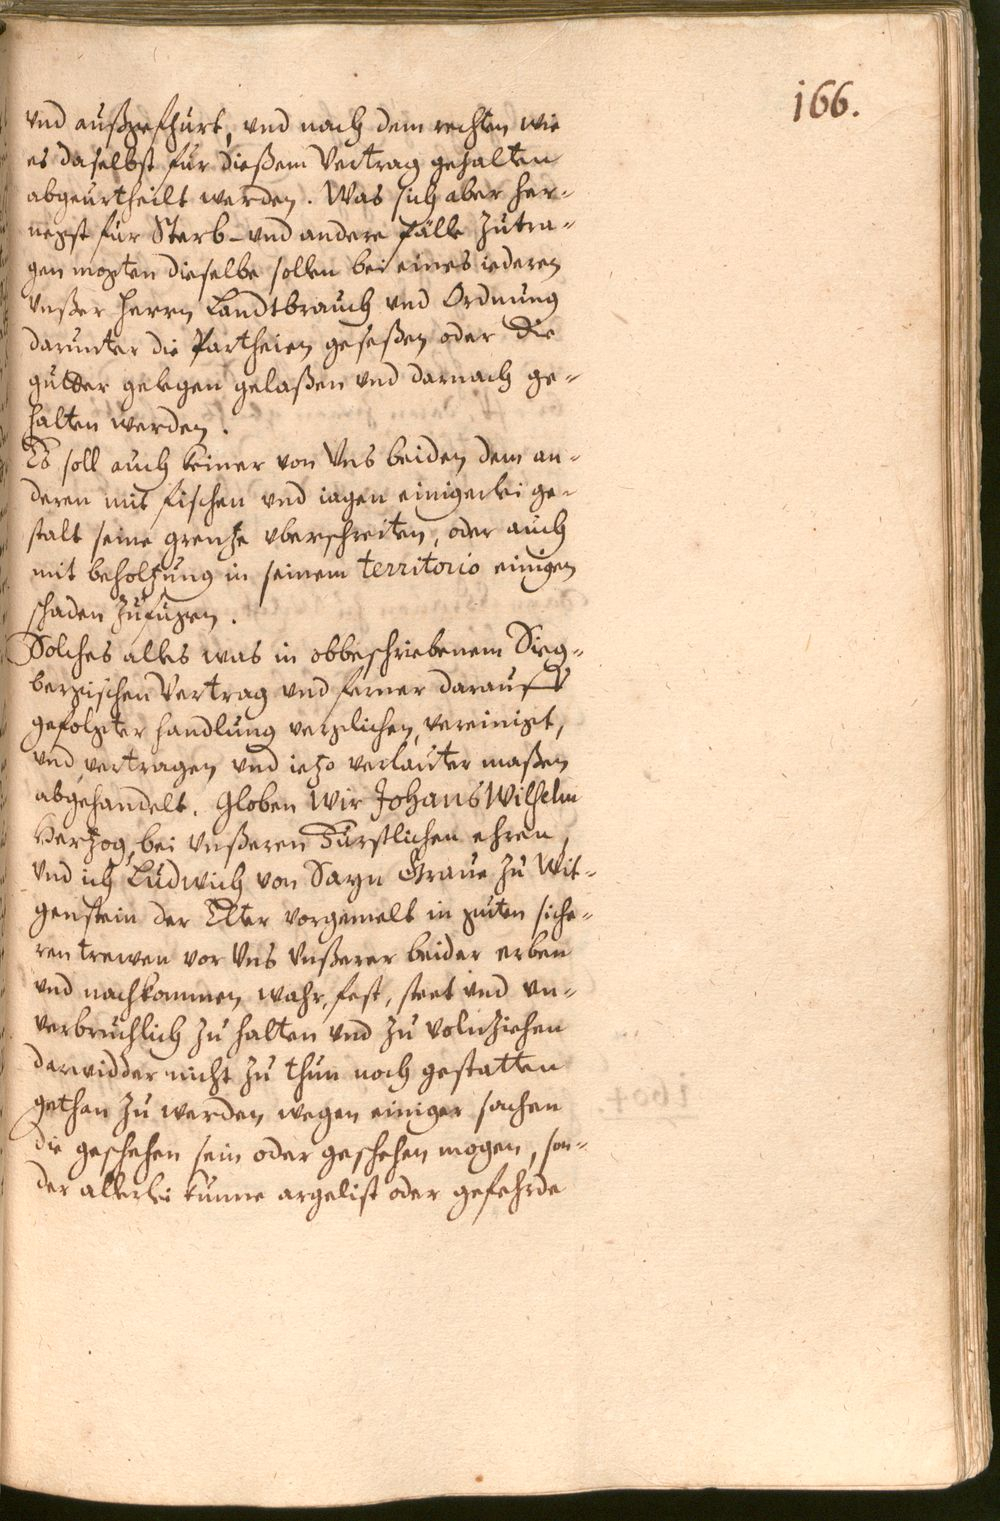 166.
vnd außgefhürt, vnd nach dem rechten wie
es daselbst für dießem Vertrag gehalten
abgeurtheilt werden. Was sich aber her-
negst für Sterb- vnd andere Fälle zutra-
gen mogten dieselbe sollen bei eines iederen
Vnßer Herrn Landtbrauch vnd Ordnung
darunter die Partheien geseßen oder die
gutter gelegen gelaßen vnd darnach ge-
halten werden.
Es soll auch keiner von Vns beiden dem an-
deren mit fischen vnd iagen einigerlei ge-
stalt seine grenze vberschreiten, oder auch
mit beholtzung in seinem territorio einigen
schaden zufugen.
Solches alles was in obbeschriebenem Sieg-
bergischen Vertrag vnd ferner darauff
gefolgter handlung verglichen, vereinigt,
vnd vertragen vnd ietzo verlauter maßen
abgehandelt. Globen Wir Johans Wilhelm
Hertzog, bei Vnßeren Furstlichen ehren,
Vnd ich Ludwich von Sayn Graue zu Wit-
genstein der Elter vorgemelt in guten siche-
ren trewen vor Vns Vnßerer beider erben
vnd nachkommen, wahr, fest, steet vnd vn-
verbruchlich zu halten vnd zu volnziehen
darwidder nicht zu thun noch gestatten
gethan zu werden, wegen einiger sachen
die geschehen sein oder geschehen mogen, son-
der allerlei kunne argelist oder gefehrde